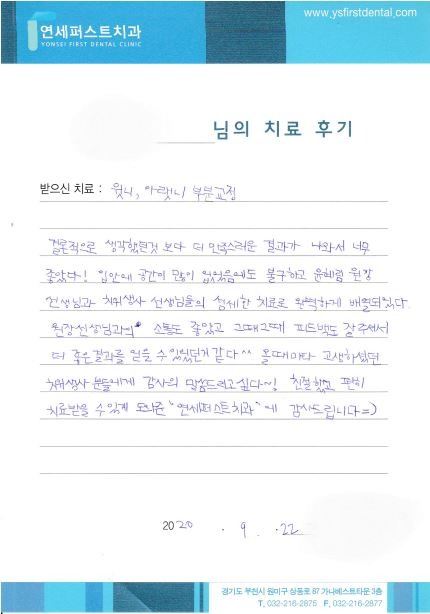 www.ysfirstdental.com
연세퍼스트치과
YONSEI FIRST DENTAL CLINIC
님의 치료 후기
받으신 치료 : 윗니, 아랫니 부분교정
결론적으로 생각했던것 보다 더 만족스러운 결과가 나와서 너무
좋았다! 입안에 공간이 많이 없었음에도 불구하고 윤혜림 원장
선생님과 치위생사 선생님들의 섬세한 치료로 완벽하게 배열되었다.
원장선생님과의 소통도 좋았고 그때그때 피드백도 잘 주셔서
더 좋은결과를 얻을 수 있었던거 같다^^ 올때마다 고생하셨던
치위생사 분들에게 감사의 말씀드리고싶다~! 친절했고 편히
치료받을 수 있게 도와준 "연세퍼스트치과"에 감사드립니다=)
2020 . 9 . 22
경기도 부천시 원미구 상동로 87 가나베스트타운 3층
T. 032-216-2875 F. 032-216-2877